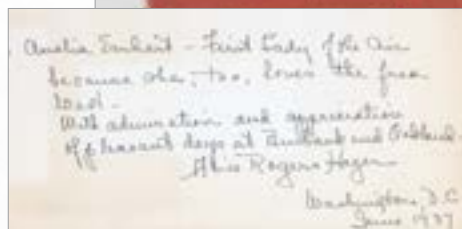 Amelia Earhart - First Lady of the Air
because she, too, loves the free
road -
With admiration and appreciation
of pleasant days at Burbank and Oakland.
Alice Rogers Hager
Washington, D.C.
June 1937